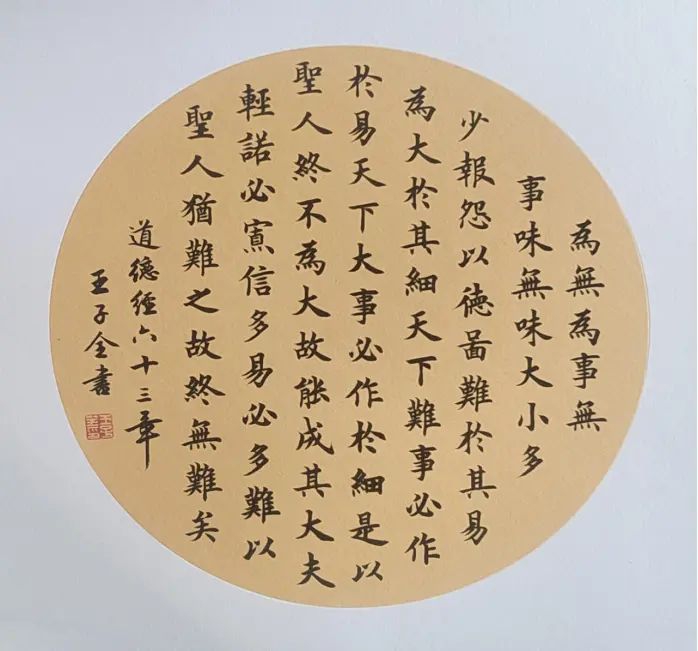 為無為事無
事味無味大小多
少報怨以徳啚難於其易
為大於其細天下難事必作
於易天下大事必作於細是以
聖人終不為大故能成其大夫
輕諾必寡信多易必多難以
聖人猶難之故終無難矣
道德經六十三章
王子全書